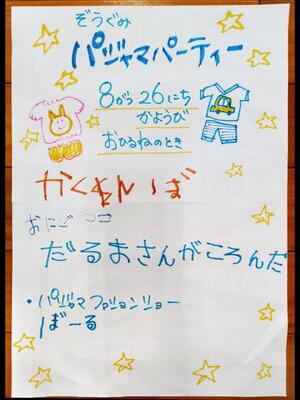 ぞうぐみ
パジャマパーティー
8がつ26にち
かようび
おひるねのとき
かくれんぼ
おにごっこ
だるまさんがころんだ
・パジャマファッションショー
ぼーる